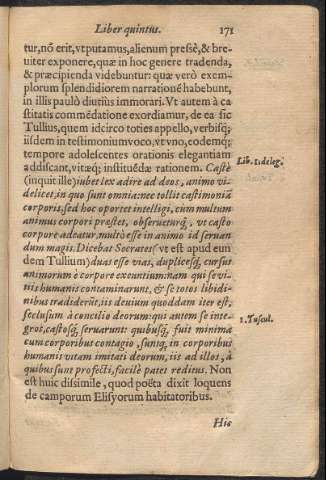 Liber quintus. 171
tur, nō erit, vt putamus, alienum presse, & bre-
uiter exponere, quæ in hoc genere tradenda,
& præcipienda videbuntur: quæ verò exem-
plorum splendidiorem narrationē habebunt,
in illis paulò diutiùs immorari. Vt autem à ca-
stitatis commēdatione exordiamur, de ea sic
Tullius, quem idcirco toties appello, verbisq́;
iisdem in testimonium voco, vt vno, eodemq́;
tempore adolescentes orationis elegantiam
addiscant, vitæq́; instituēdæ rationem. Castè
Lib. 2. de leg.
(inquit ille) iubet lex adire ad deos, animo vi-
delicet, in quo sunt omnia: nec tollit castimoniā
corporis, sed hoc oportet intelligi, cùm multum
animus corpori præstet, obserueturq́;, vt casto
corpore adeatur, multò esse in animo id seruan
dum magis. Dicebat Socrates (vt est apud eun
dem Tullium) duas esse vias, duplicesq́; cursus
animorum è corpore exeuntium: nam qui se vi-
tiis humanis contaminarunt, & se totos libidi-
nibus tradiderūt, iis deuium quoddam iter est,
seclusum à concilio deorum: qui autem se inte-
1. Tuscul.
gros, castosq́; seruarunt: quibusq́; fuit minima
cum corporibus contagio, suntq́; in corporibus
humanis vitam imitati deorum, iis ad illos, à
quibus sunt profecti, facilè patet reditus. Non
est huic dissimile, quod poëta dixit loquens
de camporum Elisyorum habitatoribus.
His